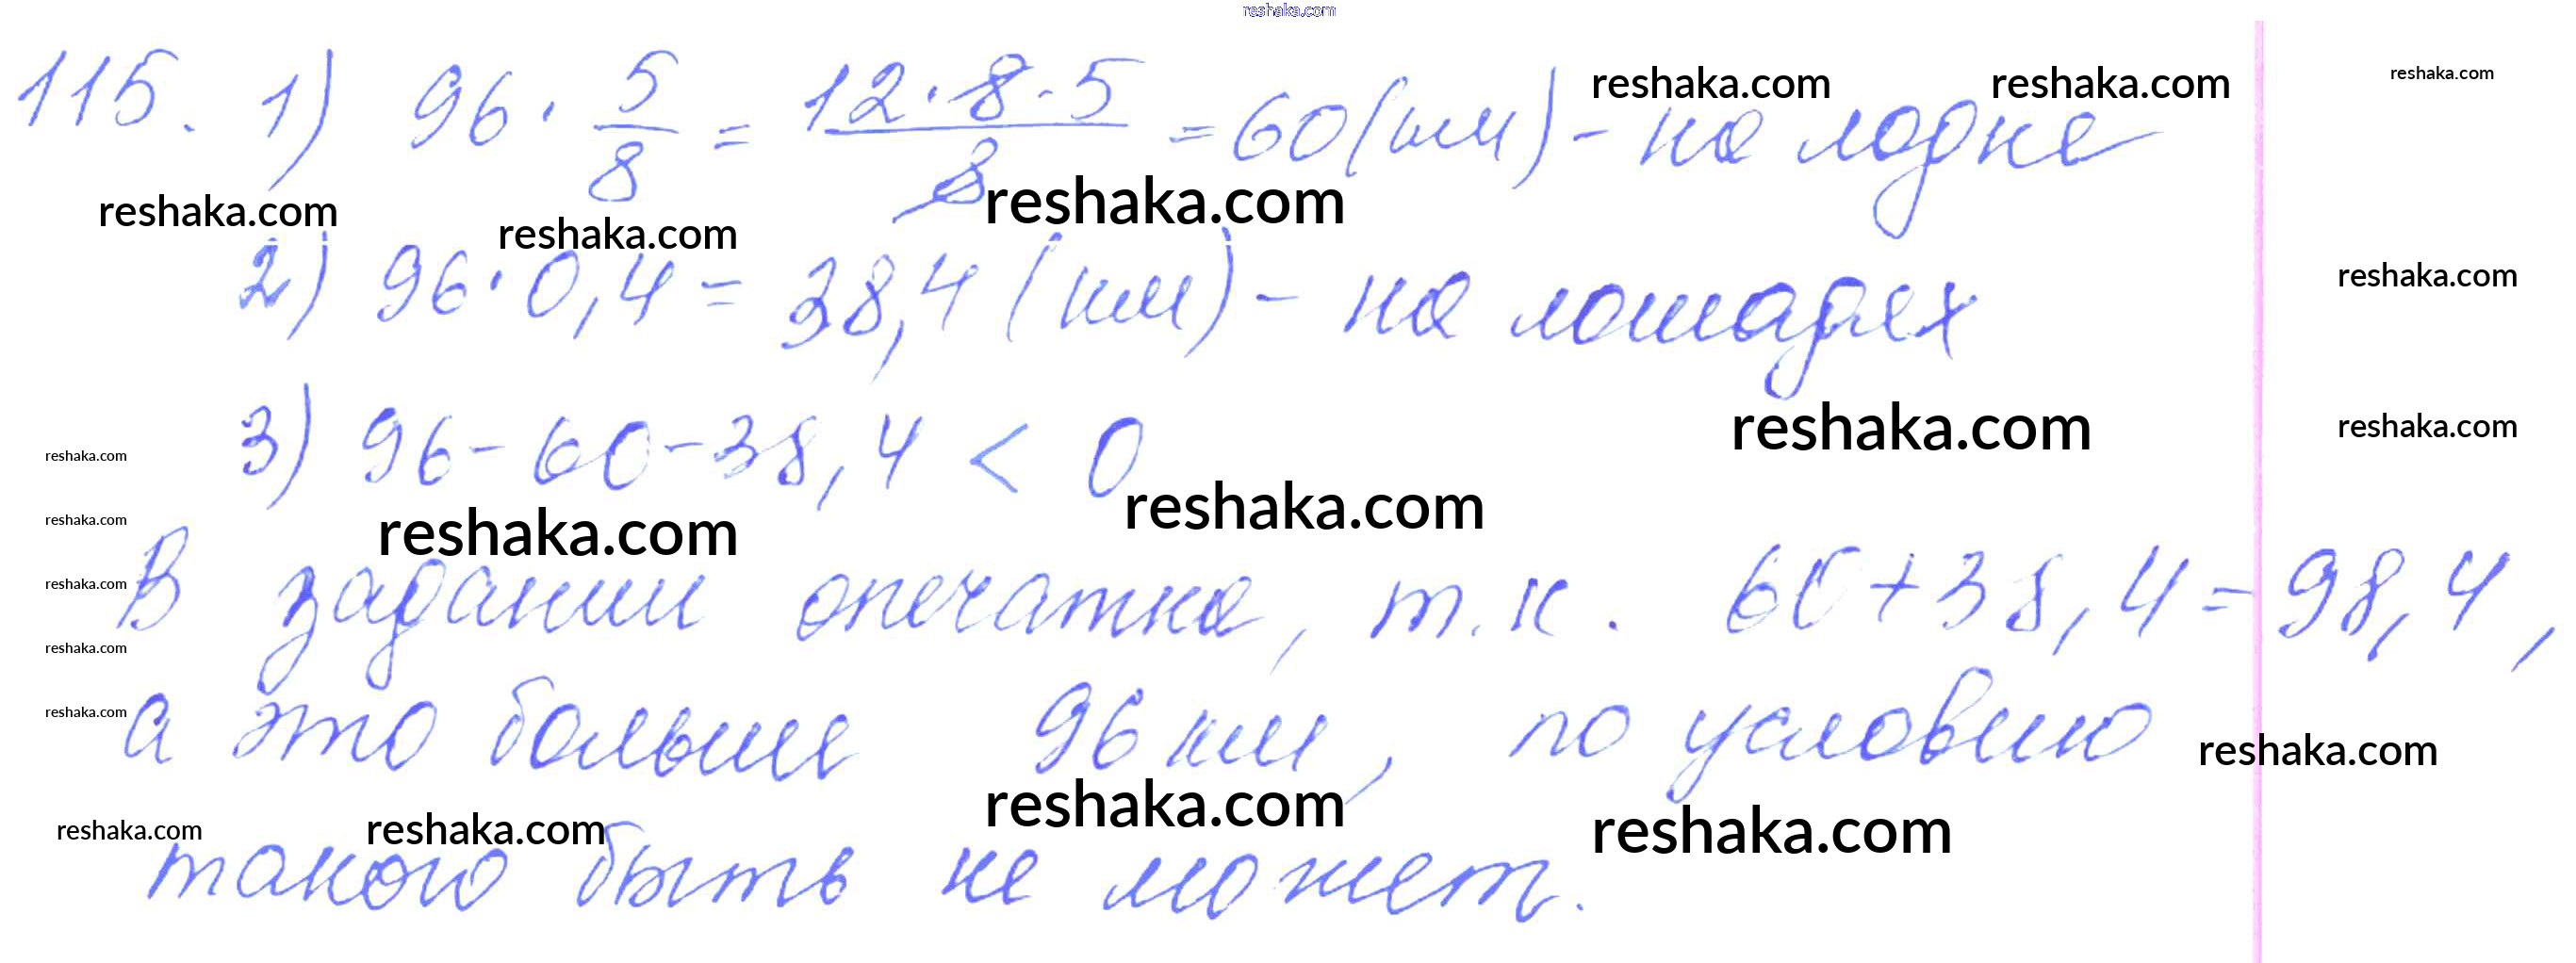 reshaka.com
115. 1) 96 · 5/8 = 12·8·5/8 = 60 (км) - на лодке
reshaka.com reshaka.com reshaka.com
reshaka.com reshaka.com reshaka.com
2) 96 · 0,4 = 38,4 (км) - на лошадях
reshaka.com
3) 96 - 60 - 38,4 < 0
reshaka.com reshaka.com
reshaka.com
reshaka.com reshaka.com
reshaka.com
В задании опечатка, т.к. 60 + 38,4 = 98,4,
reshaka.com
reshaka.com
а это больше 96 км, по условию
reshaka.com reshaka.com
reshaka.com reshaka.com reshaka.com reshaka.com
такого быть не может.